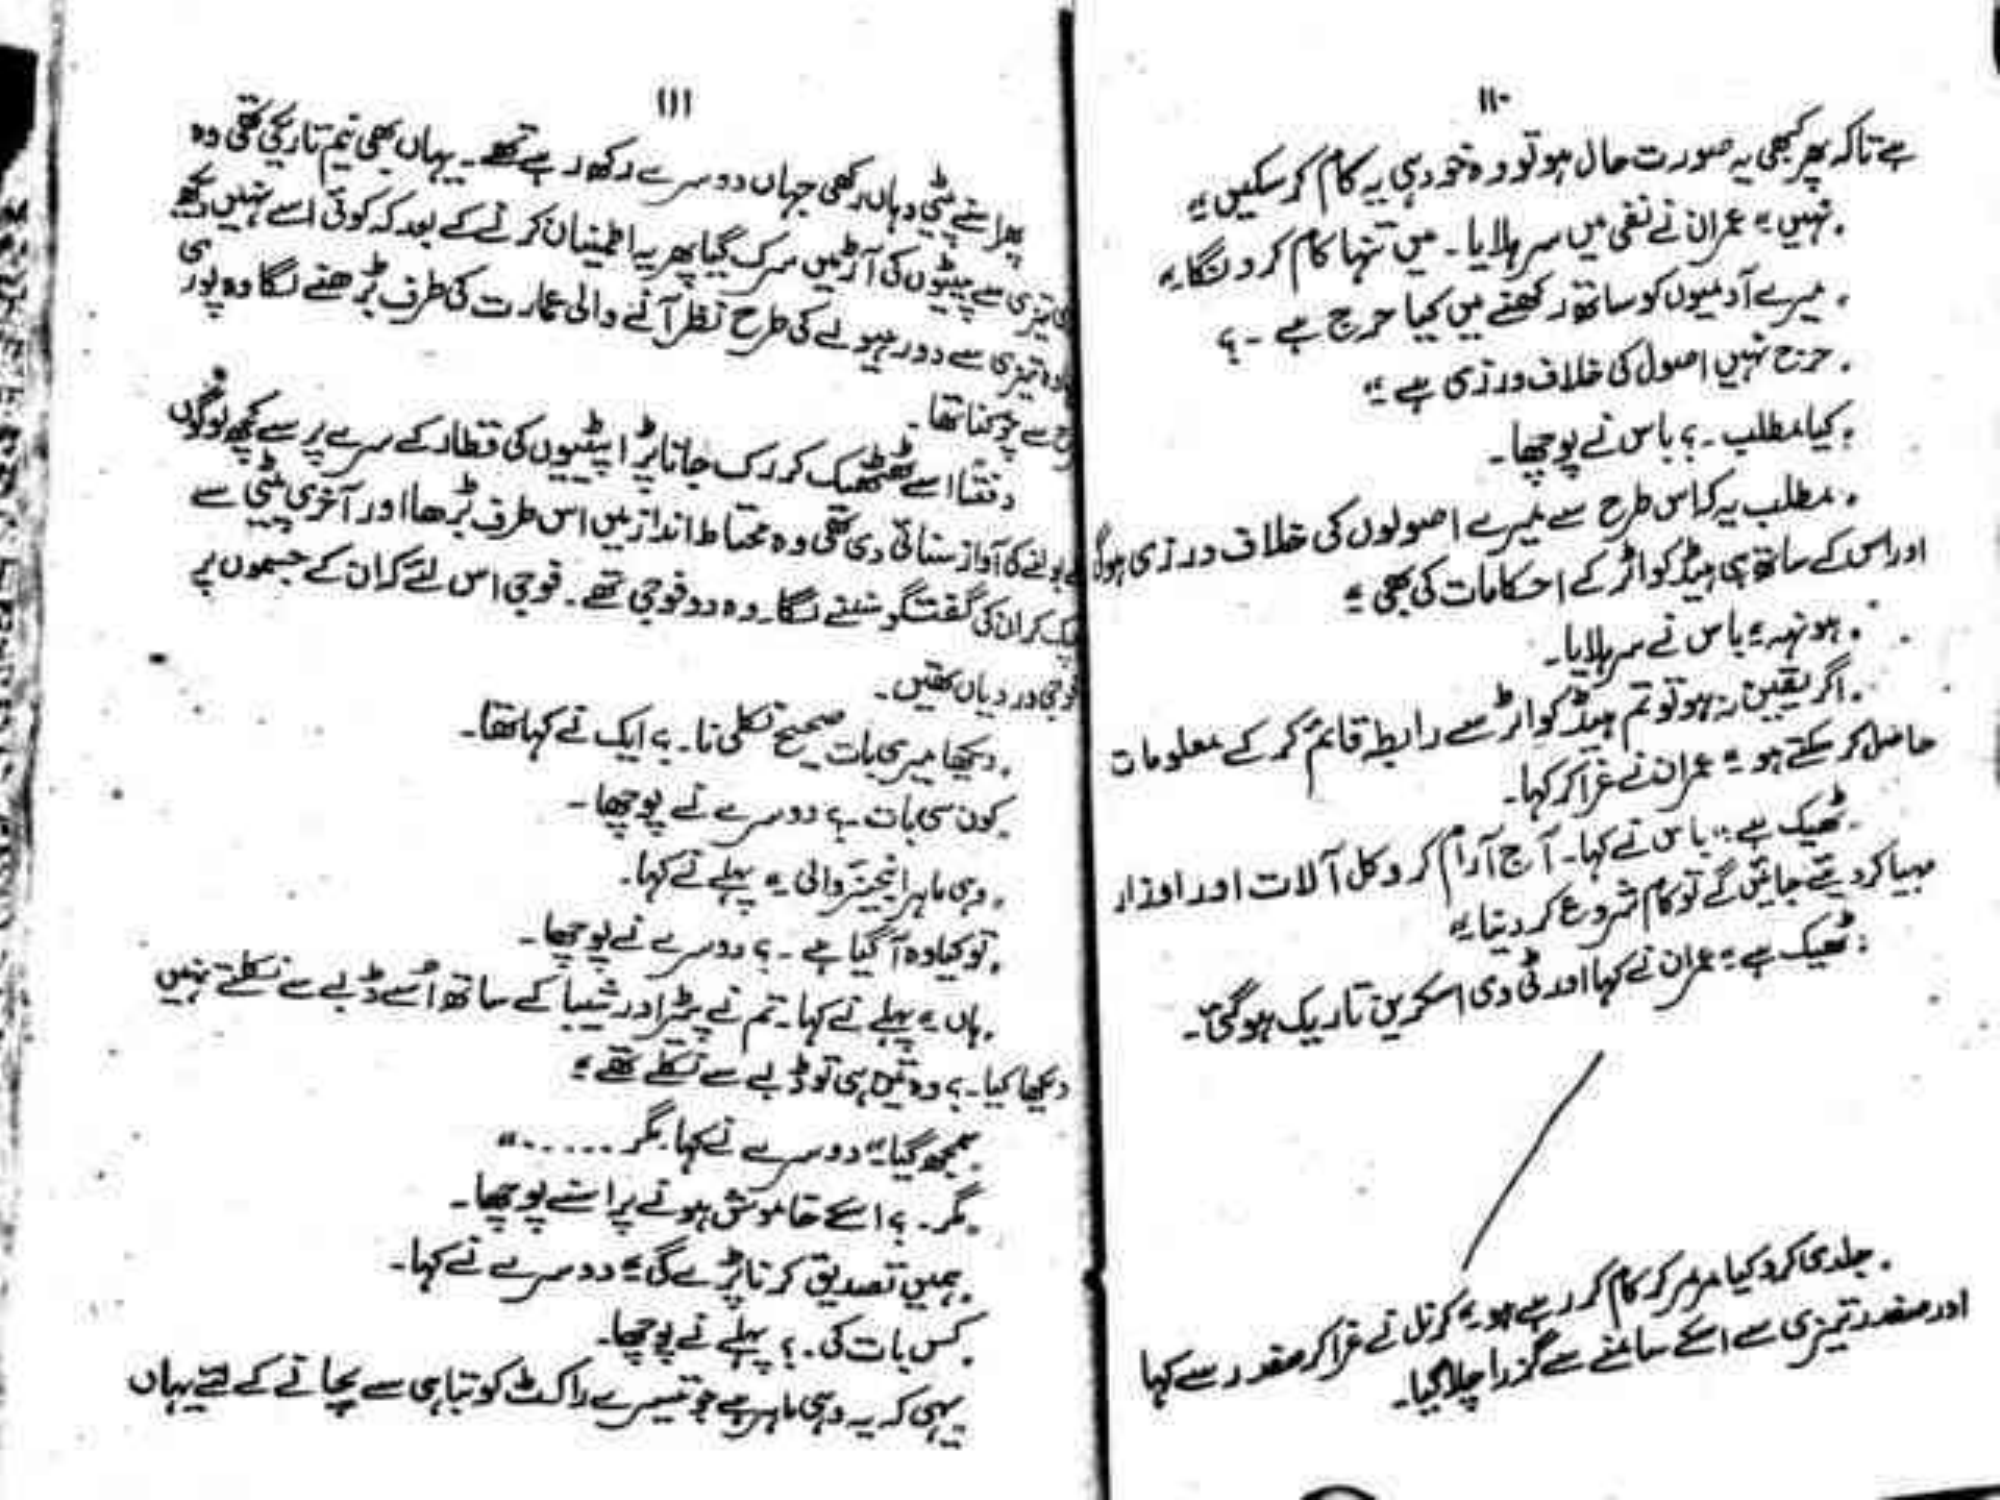 ۱۱۰
ہے تاکہ پھر کبھی یہ صورت حال ہو تو وہ خود ہی یہ کام کر سکیں“
۔ نہیں“ عمران نے نفی میں سر ہلایا۔ میں تنہا کام کرونگا“
۔ میرے آدمیوں کو ساتھ رکھنے میں کیا حرج ہے ۔ ؟
۔ حرج نہیں اصول کی خلاف ورزی ہے“
۔ کیا مطلب ۔ ؟ باس نے پوچھا۔
۔ مطلب یہ کہ اس طرح سے میرے اصولوں کی خلاف ورزی ہوگی
اور اس کے ساتھ ہی ہیڈ کواٹر کے احکامات کی بھی“
۔ ہونہہ“ باس نے سر ہلایا۔
۔ اگر یقین نہ ہو تو تم ہیڈ کواٹر سے رابطہ قائم کر کے معلومات
حاصل کر سکتے ہو“ عمران نے غرا کر کہا۔
۔ ٹھیک ہے“ باس نے کہا۔ آج آرام کرو کل آلات اور اوزار
مہیا کر دیئے جائیں گے تو کام شروع کر دینا“
۔ ٹھیک ہے“ عمران نے کہا اور ٹی وی اسکرین تاریک ہو گئی۔
۔ جلدی کرو کیا مر مر کر کام کر رہے ہو“ کرنل نے غرا کر صفدر سے کہا
اور صفدر تیزی سے اسکے سامنے سے گزرا چلا گیا۔
۱۱۱
پھر اسنے پیٹی وہاں رکھی جہاں دوسرے رکھ رہے تھے ۔ یہاں بھی نیم تاریکی تھی وہ
تیزی سے پیٹیوں کی آڑ میں سرک گیا پھر یہ اطمینان کرنے کے بعد کہ کوئی اسے نہیں دیکھ
تیزی سے دور ہیولے کی طرح نظر آنے والی عمارت کی طرف بڑھنے لگا وہ پوری
سے چوکنا تھا ۔
دفعتاً اسے ٹھٹھک کر رک جانا پڑا پیٹیوں کی قطار کے سرے پر سے کچھ لوگوں
بولنے کی آواز سنائی دی تھی وہ محتاط انداز میں اس طرف بڑھا اور آخری پیٹی سے
کر ان کی گفتگو سننے لگا۔ وہ دو فوجی تھے ۔ فوجی اس لئے کہ ان کے جسموں پر
فوجی وردیاں تھیں ۔
۔ دیکھا میری بات صحیح نکلی نا ۔ ؟ ایک نے کہا تھا۔
۔ کون سی بات ۔ ؟ دوسرے نے پوچھا ۔
۔ وہی ماہر انجینئر والی“ پہلے نے کہا۔
۔ تو کیا وہ آ گیا ہے ۔ ؟ دوسرے نے پوچھا ۔
۔ ہاں“ پہلے نے کہا ۔ تم نے پیٹر اور شیبا کے ساتھ اُسے ڈبے سے نکلتے نہیں
دیکھا کیا ۔ ؟ وہ تین ہی تو ڈبے سے نکلے تھے“
۔ سمجھ گیا“ دوسرے نے کہا۔ مگر ۔ ۔ ۔ ۔ ۔ ۔“
۔ مگر ۔ ؟ اسکے خاموش ہونے پر اسنے پوچھا ۔
۔ ہمیں تصدیق کرنا پڑے گی“ دوسرے نے کہا ۔
۔ کس بات کی ۔ ؟ پہلے نے پوچھا ۔
یہی کہ یہ وہی ماہر ہے جو تیسرے راکٹ کو تباہی سے بچانے کے لئے یہاں